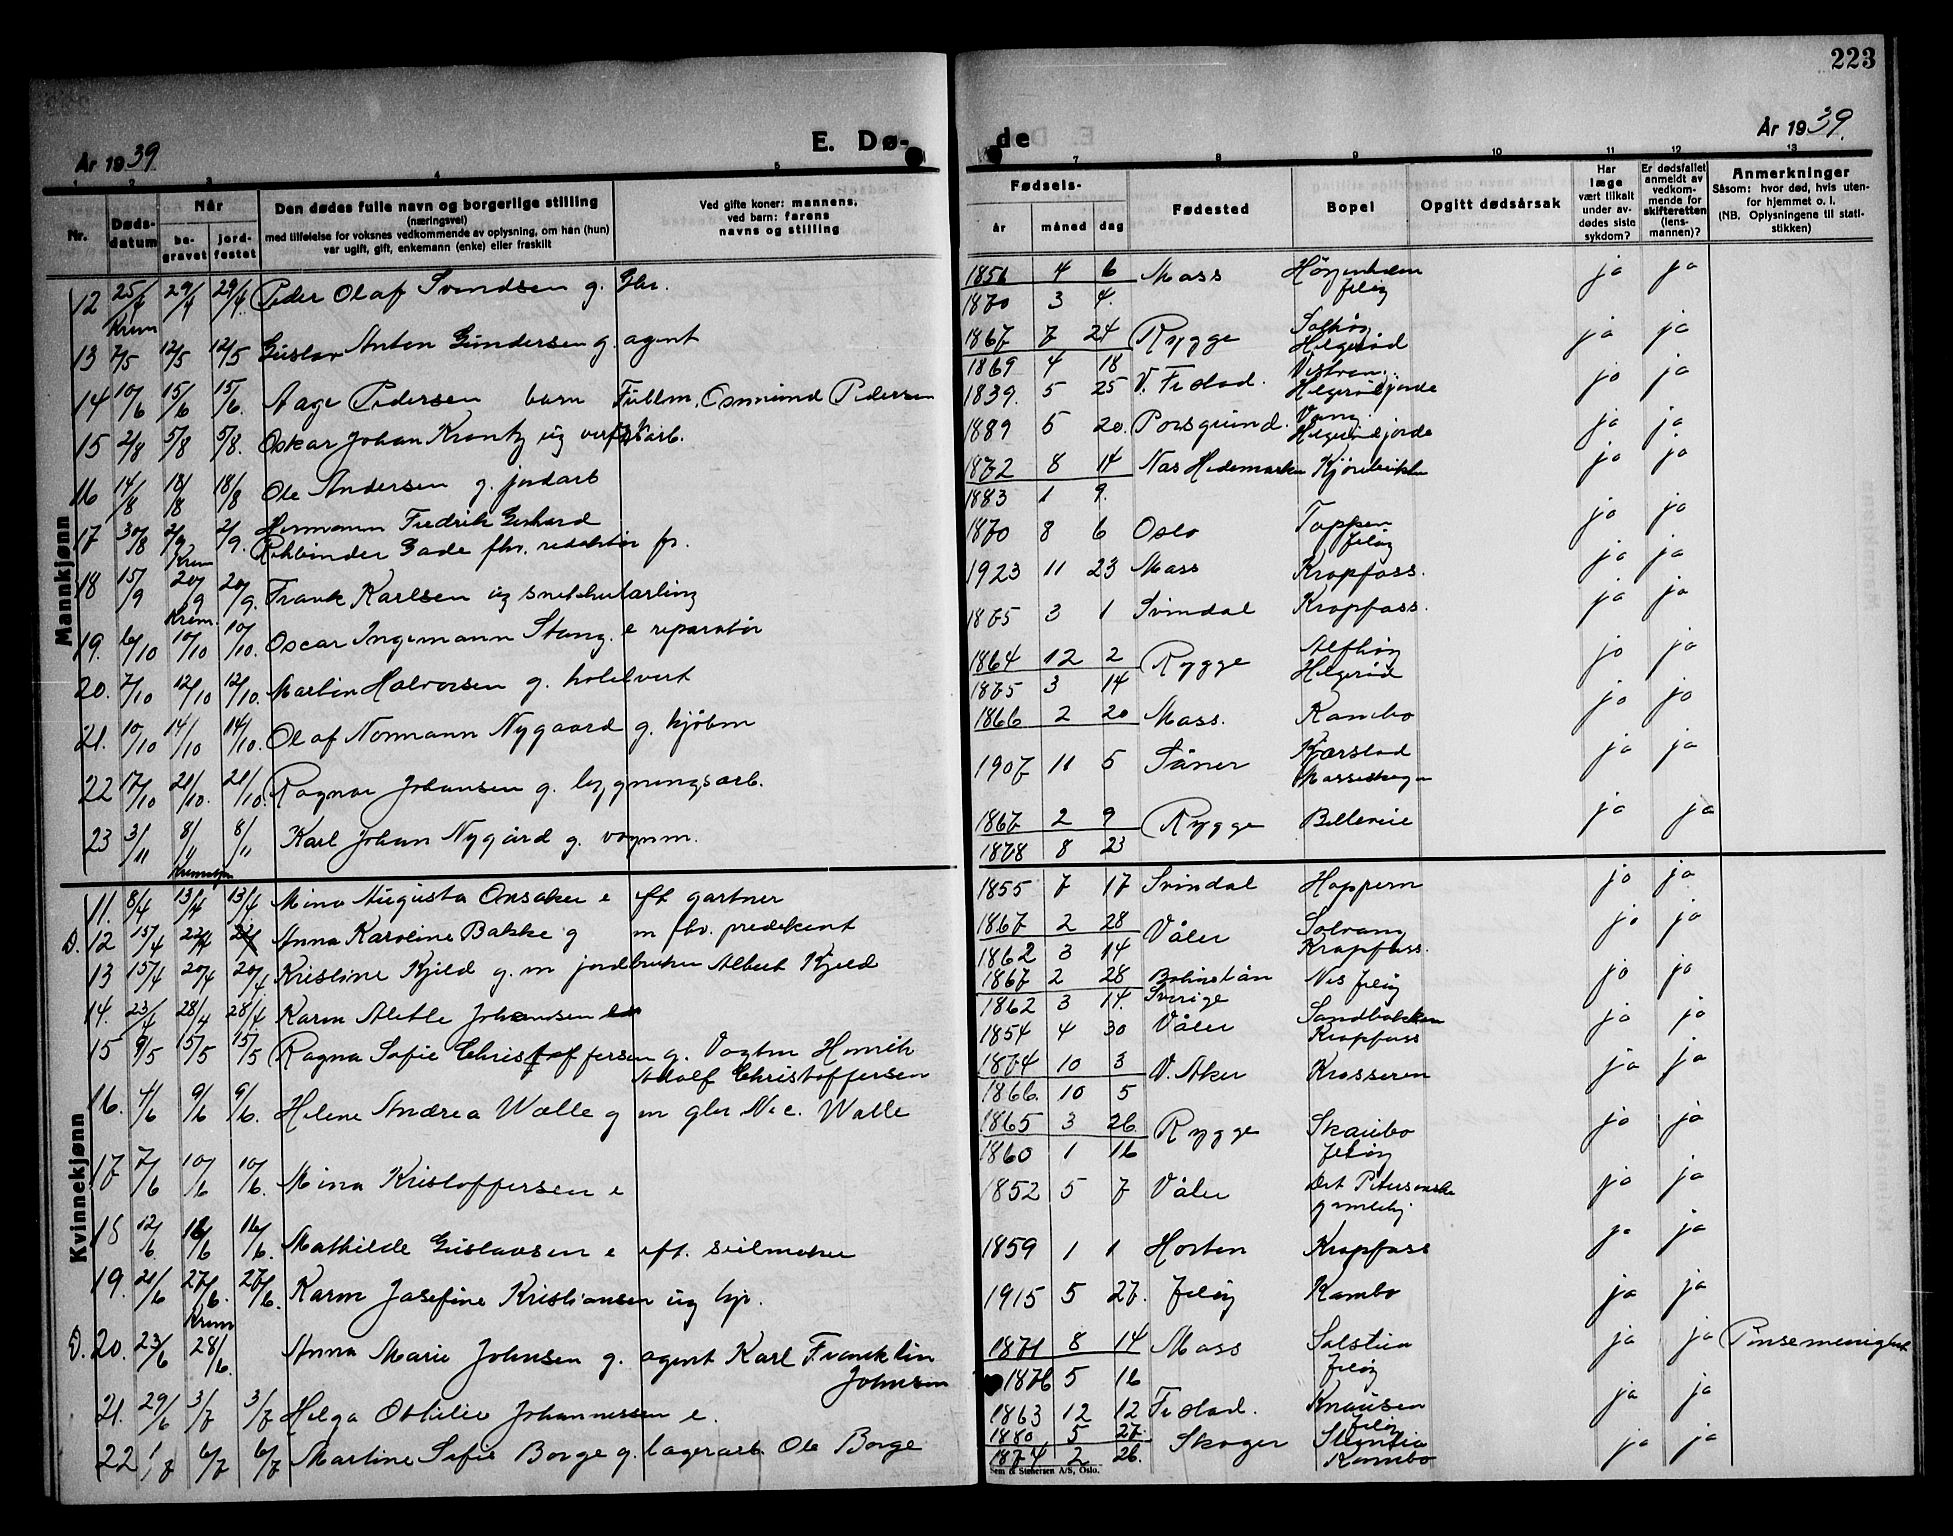 223
År 1939.
E. Dø-
de
År 1939.
1 2 3 4 5
7 8 9 10 11 12 13
Nr.
Døds-
datum
Når
be-
gravet
jord-
festet
Den dødes fulle navn og borgerlige stilling
(næringsvei)
med tilføielse for voksnes vedkommende av oplysning, om han (hun)
var ugift, gift, enkemann (enke) eller fraskilt
Ved gifte koner: mannens,
ved barn: farens
navns og stilling
Fødsels-
år måned dag
Fødested
Bopel
Opgitt dødsårsak
Har
læge
vært tilkalt
under av-
dødes siste
sykdom?
Er dødsfallet
anmeldt av
vedkom-
mende for
skifteretten
(lens-
mannen)?
Anmerkninger
Såsom: hvor død, hvis uten-
for hjemmet o. l.
(NB. Oplysningene til stati-
stikken)
Mannkjønn
12 25/4 29/4 29/4 Peder Olaf Svendsen g. Gbr. 1856 4 6 Moss Jeløy ja ja
1870 3 4.
Krem
13 7/5 12/5 12/5 Gustav Anton Gundersen g agent 1867 7 24 Rygge Solhøy Helgerød ja ja
1869 4 18
14 10/6 15/6 15/6. Aage Pedersen barn Fullm. Osmund Pedersen 1839. 5 25 V. Fr.stad. Helgerødjorde ja ja
15 2/8 5/8 5/8. Oskar Johan Krantz ug verkst.arb. 1889 5 20. Porsgrund. Vang Helgerødjorde ja ja
16 14/8 18/8 18/8 Ole Andersen g. jordarb 1872 8 14 Nes Hedemarken ja ja
1883 1 9.
17 30/8 2/9 2/9. Hermann Fredrik Gerhard
Rehbinder Gade fhv. redaktør fr. 1870 8 6 Oslo Toppen Jeløy ja ja
Krem
18 15/9 20/9 20/9. Frank Karlsen ug snekkerlærling 1923 11 23 Moss Krapfoss. ja ja
Krem.
19. 6/10 10/10 10/10. Oscar Ingemann Stang. e reparatør 1875 3 1 Svindal Krapfoss. ja ja
20. 7/10 12/10 12/10. Martin Halvorsen g. hotelvert 1864 12 2 Rygge Alfhøy Helgerød ja ja
1875 3 14
21. 10/10 14/10 14/10. Olaf Normann Nygaard g. kjøbm 1866 2 20 Moss. Kambo ja ja
22 17/10 21/10. 21/10. Ragnar Johansen g. bygningsarb. 1907 11 5 Såner Kjærstad Mosseskogen ja ja
23 3/11 8/11 8/11 Karl Johan Nygård g. vognm. 1867 2 9 Rygge Bellevue ja ja
1878 8 23
Kvinnekjønn
11. 8/4 13/4 13/4 Mina Augusta Onsaker e eft gartner 1855 7 17 Svindal Hoppern ja ja
D. 12 15/4 22/4 Anna Karoline Bakke g m fhv. predikant 1867 2 28 Våler Solvang Krapfoss. ja ja
1862 3 14
13 15/4 20/4 20/4 Kristine Kjeld g. m jordbruker Albert Kjeld 1867 2 28 Bohuslän Sverige Nes Jeløy ja ja
1862 3 14.
14. 23/4 28/4 28/4 Karen Alette Johansen 1854 4 30 Våler Sandbakken Krapfoss ja ja
15 9/5 15/5 15/5 Ragna Sofie Christoffersen g. Vogtm Henrik
Adolf Christoffersen 1874 10 3 V. Aker Krosseren ja ja
1866. 10 5
16. 4/6 9/6 9/6. Helene Andrea Walle g m gbr N. C. Walle 1865 3 26 Rygge Skaubo Jeløy ja ja
1860 1 16
17 7/6 10/6 10/6. Mina Kristoffersen e 1852 5 7 Våler Det Petersonske gamlehj ja ja
18 12/6. 16/6 16/6. Mathilde Gustavsen e eft. seilmaker 1859 1 1 Horten Krapfoss ja ja
19. 21/6 27/6. 27/6. Karen Josefine Kristiansen ug hjr. 1915 5 27. Jeløy Kambo ja ja
Krem
D. 20. 23/6 28/6. Anna Marie Johnsen g. agent Karl Franklin
Johnsen 1871 8 14 Moss Solstua Jeløy ja ja Pinsemenighet
1876 5 16
21. 29/6 3/7 3/7 Helga Othilie Johannessen e. 1863 12 12 Fr.stad. Knausen Jeløy ja ja
22 1/7 6/7 6/7 Martine Sofie Borge g. lagerarb Ole Borge 1880 5 27 Skoger Kambo ja ja
1874 2 26.
Sem & Stenersen A/S, Oslo.